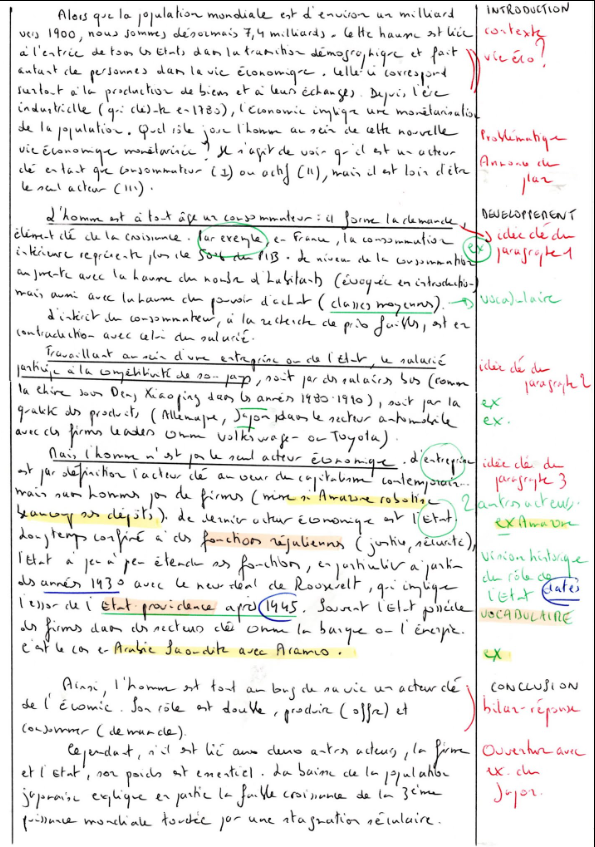 Alors que la population mondiale est d'environ un milliard
vers 1900, nous sommes désormais 7,4 milliards. Cette hausse est liée
à l'entrée de tous les Etats dans la transition démographique et fait
autant de personnes dans la vie économique. Celle-ci correspond
surtout à la production de biens et à leurs échanges. Depuis l'ère
industrielle (qui débute en 1780), l'économie implique une monétarisation
de la population. Quel rôle joue l'homme au sein de cette nouvelle
vie économique monétarisée ? Il s'agit de voir qu'il est un acteur
clé en tant que consommateur (I) ou actif (II), mais il est loin d'être
le seul acteur (III).
INTRODUCTION
contexte
vie éco ?
Problématique
Annonce du
plan
L'homme est à tout âge un consommateur : il forme la demande,
élément clé de la croissance. Par exemple, en France, la consommation
intérieure représente plus de 50% du PIB. Le niveau de la consommation
augmente avec la hausse du nombre d'habitants (évoquée en introduction)
mais aussi avec la hausse du pouvoir d'achat (classes moyennes).
L'intérêt du consommateur, à la recherche de prix faibles, est en
contradiction avec celui du salarié.
DEVELOPPEMENT
idée clé du
paragraphe 1
ex
vocabulaire
Travaillant au sein d'une entreprise ou de l'Etat, le salarié
participe à la compétitivité de son pays, soit par des salaires bas (comme
la Chine sous Deng Xiaoping dans les années 1980-1990), soit par la
qualité des produits (Allemagne, Japon dans le secteur automobile
avec des firmes leaders comme Volkswagen ou Toyota).
idée clé du
paragraphe 2
ex
ex.
Mais l'homme n'est pas le seul acteur économique. L'entreprise
est par définition l'acteur clé au coeur du capitalisme contemporain...
mais sans hommes pas de firmes (même si Amazon robotise
beaucoup ses dépôts). Le dernier acteur économique est l'Etat.
Longtemps confiné à des fonctions régaliennes (justice, sécurité),
l'Etat a peu à peu étendu ses fonctions, en particulier à partir
des années 1930 avec le new deal de Roosevelt, qui implique
l'essor de l'Etat-providence après 1945. Souvent l'Etat possède
des firmes dans des secteurs clés comme la banque ou l'énergie.
C'est le cas en Arabie Saoudite avec Aramco.
idée clé du
paragraphe 3
2 autres acteurs.
ex Amazon
vision historique
du rôle de
l'Etat dates
VOCABULAIRE
ex
Ainsi, l'homme est tout au long de sa vie un acteur clé
de l'évomic. Son rôle est double, produire (offre) et
consommer (demande).
Cependant, s'il est lié aux deux autres acteurs, la firme
et l'Etat, son poids est essentiel. La baisse de la population
japonaise explique en partie la faible croissance de la 3ème
puissance mondiale touchée par une stagnation séculaire.
CONCLUSION
bilan-réponse
Ouverture avec
ex. du
Japon.